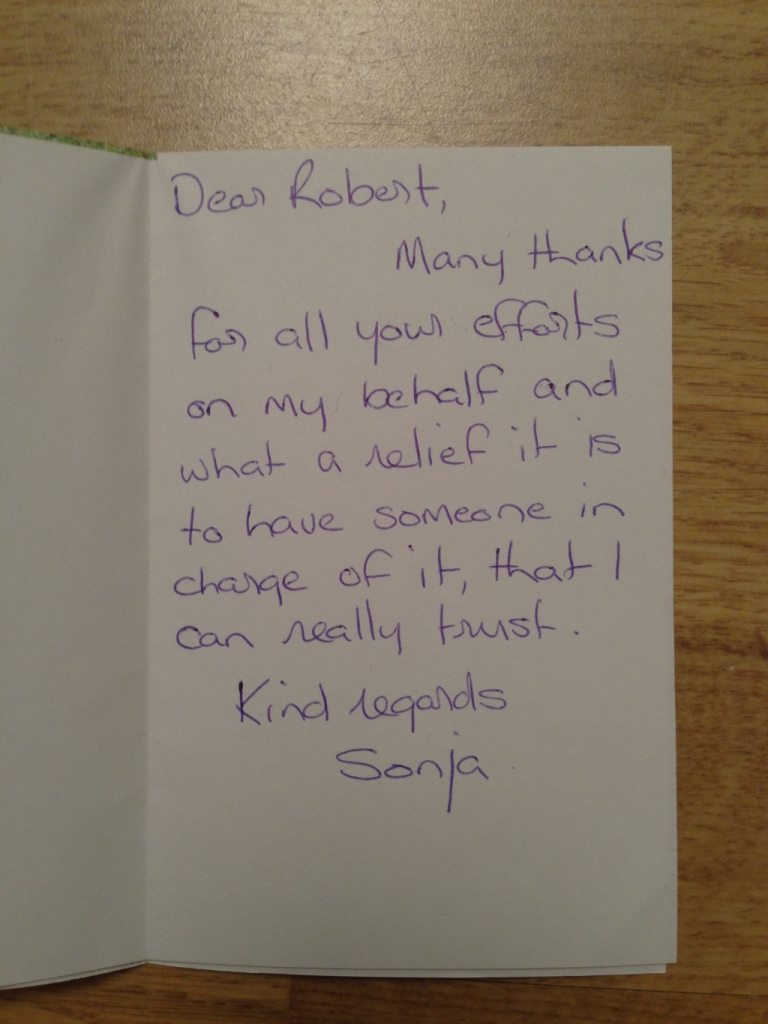 Dear Robert,
Many thanks
for all your efforts
on my behalf and
what a relief it is
to have someone in
charge of it, that I
can really trust.
Kind regards
Sonja